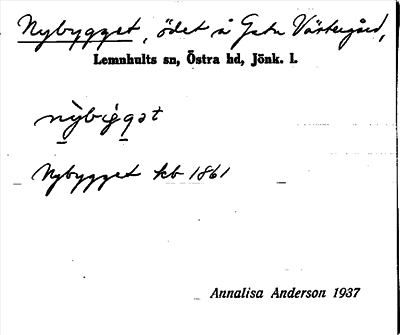 Nybygget, ödet å Gatu Västergård,
Lemnhults sn, Östra hd, Jönk. l.
nỳbìgət
Nybygget kb 1861
Annalisa Anderson 1937